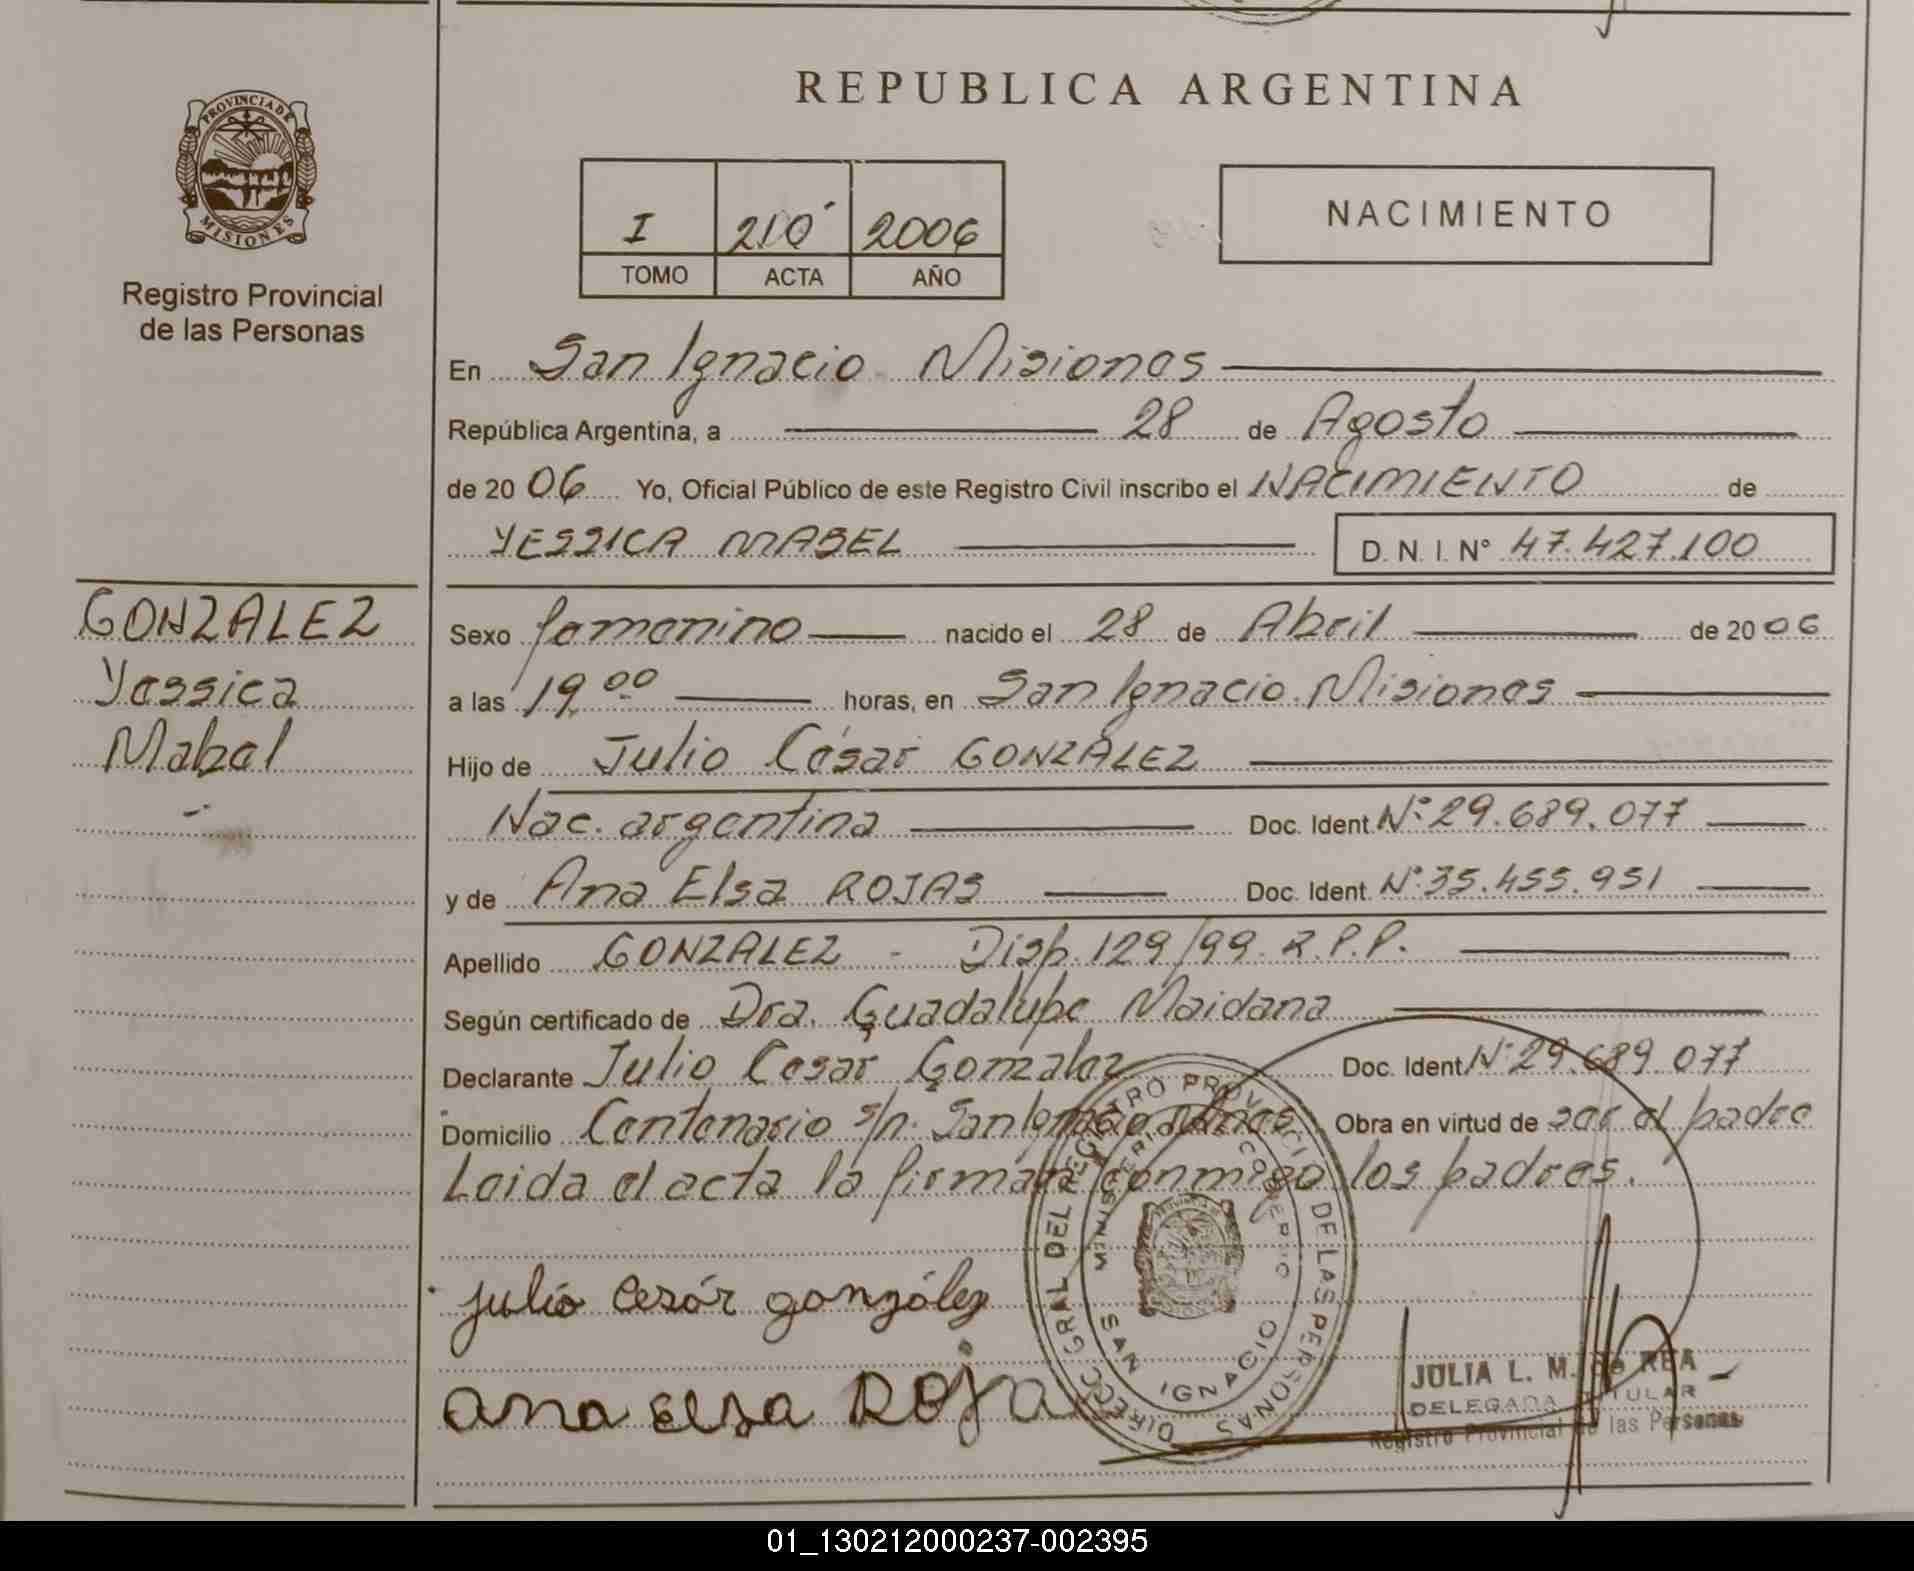 REPUBLICA ARGENTINA
PROVINCIA DE
MISIONES
Registro Provincial
de las Personas
I 210 2006
TOMO ACTA AÑO
NACIMIENTO
En San Ignacio Misiones
República Argentina, a 28 de Agosto
de 2006 Yo, Oficial Público de este Registro Civil inscribo el NACIMIENTO de
YESSICA MABEL D. N. I. N° 47.427.100
GONZALEZ
Yessica
Mabel
Sexo femenino nacido el 28 de Abril de 2006
a las 19,00 horas, en San Ignacio. Misiones
Hijo de Julio César GONZALEZ
Nac. argentina Doc. Ident. N° 29.689.077
y de Ana Elsa ROJAS Doc. Ident. N° 35.455.951
Apellido GONZALEZ - Disp. 129/99. R.P.P.
Según certificado de Dra. Guadalupe Maidana
Declarante Julio Cesar Gonzalez Doc. Ident N° 29.689.077
Domicilio Centenario s/n. San Ignacio Mnes Obra en virtud de ser el padre
Leida el acta la firman conmigo los padres.
julio cesár gonzólez
ana elsa ROjas
DIRECC GRAL DEL REGISTRO PROVINCIAL DE LAS PERSONAS
MINISTERIO DE GOBIERNO
SAN IGNACIO
JULIA L. M. de REA
DELEGADA TITULAR
Registro Provincial de las Personas
01_130212000237-002395